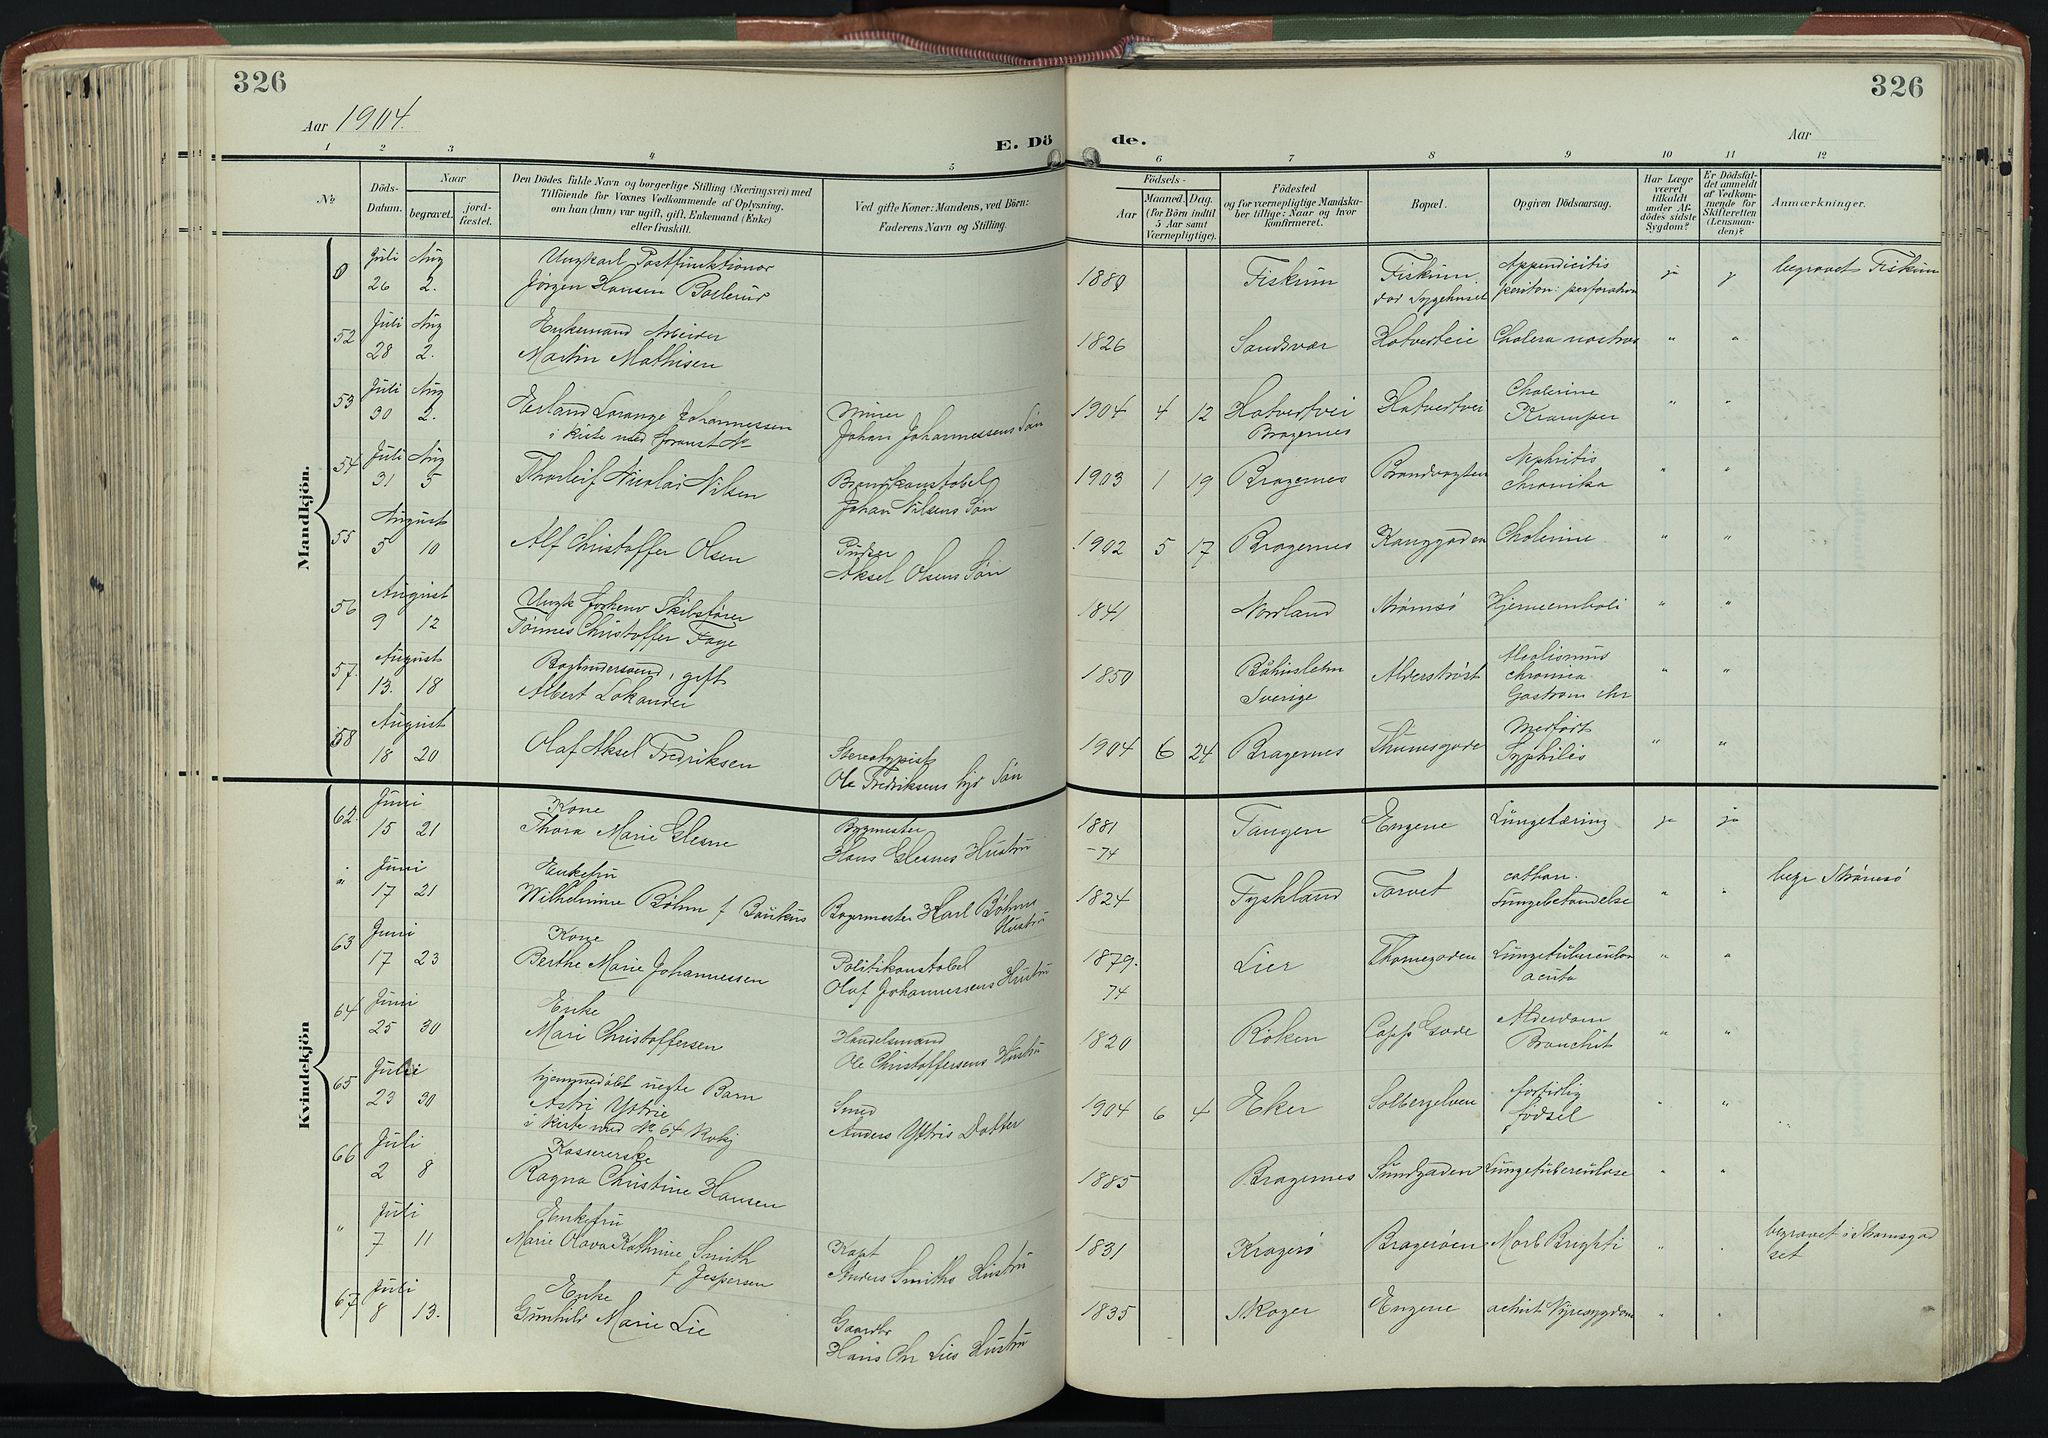 326
326
Aar 1904.
Aar
E. Dö
de.
1 2 3 4 5 6 7 8 9 10 11 12
№
Döds-
Datum.
Naar
begravet.
jord-
fæstet.
Den Dödes fulde Navn og borgerlige Stilling (Næringsvei) med
Tilföiende for Voxnes Vedkommende af Oplysning,
om han (hun) var ugift, gift, Enkemand (Enke)
eller fraskilt.
Ved gifte Koner: Mandens, ved Börn:
Faderens Navn og Stilling.
Födsels-
Aar
Maaned. Dag.
(for Börn indtil
5 Aar samt
Værnepligtige).
Födested
og for værnepligtige Mandska-
ber tillige: Naar og hvor
konfirmeret.
Bopæl.
Opgiven Dödsaarsag.
Har Læge
været
tilkaldt
under Af-
dödes sidste
Sygdom?
Er Dödsfal-
det anmeldt
af Vedkom-
mende for
Skifteretten
(Lensman-
den)?
Anmærkninger.
Mandkjön.
0 Juli Aug Ungkarl Postfunktionær Fiskum Appendicitis ja begravet Fiskum
26 2. Jørgen Hansen 1880 Fiskum Sygehuset periton: perforation
52 Juli Aug Enkemand Arbeider
28 2. Martin Mathisen 1826 Sandsvær Hotvetveie Cholera nostras " "
53 Juli Aug Erland Lorange Johannessen Miner 1904 4 12 Hotvedtvei Hotvedtvei Cholerine " "
30 2. i kiste med Johan Johannessens Søn Bragernes Kramper
54 Juli Aug Thorleif Nicolai Nilsen Brandkonstabel 1903 1 19 Bragernes Brandvagten Nephritis " "
31 5 Johan Nilsens Søn chronika
55 August Alf Christoffer Olsen Pudser 1902 5 17 Bragernes Cholerine " "
5 10 Aksel Olsens Søn
56 August Ungk forhenv Skibsfører
9 12 Tønnes Christoffer Foge 1841 Nordland Strømsø Hjerneemboli " "
57. August Bogbindersvend, gift 1850 Båhuslehn Alderstrøst " "
13. 18 Albert Lokander Sverige chronica
58 August Olaf Aksel Fredriksen Stereotypist 1904 6 24 Bragernes Medfødt " "
18 20 Ole Fredriksens Søn Syphilis
Kvindekjön
62. Juni Kone Bygmester 1881 Tangen Engene Lungetæring ja ja
15 21 Thora Marie Glesne Hans Glesnes Hustru -74
" Juni Enkefru cathar. begr Strømsø
17 21 Wilhelmine Böhm f Bagermester Karl Böhms Hustru 1824 Tyskland Torvet Lungebetændelse " "
63 Juni Kone Politikonstabel 1879. Lier Thomegaden Lungetuberculose " "
17 23 Berthe Marie Johannessen Olaf Johannessens Hustru 74 acuta
64 Juni Enke Handelsmand 1820 Røken Capps Gade Alderdom " "
25 30 Mari Christoffersen Ole Christoffersens Hustru Bronchit
65 Juli hjemmedøbt uegte Barn Smed 1904 6 4 Eker Solbergelven fortidlig " "
23 30 Astri Ystrie Anders Ystris Datter fødsel
i kiste med No 64
66 Juli Kassererske
2 8 Ragna Christine Hansen 1885 Bragernes Sundgaden Lungetuberculose " "
" Juli Enkefru Kapt 1831 Kragerø Bragerøen Morb Brighti " begravet i
7 11 Marie Olava Kathrine Smith Anders Smiths Hustru
f Jespersen
67 Juli Enke Gaardbr 1835 Skoger Engene Nyresygdom " "
8 13. Gunhild Marie Lie Hans Chr Lies Hustru